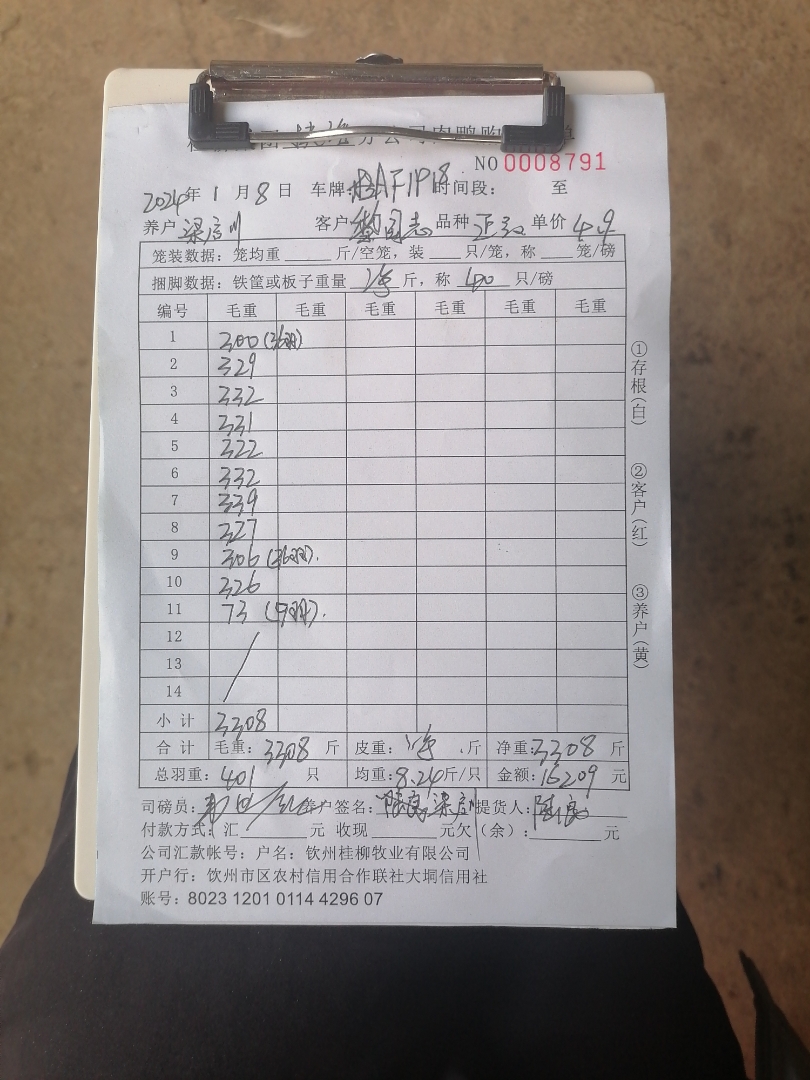 分公司肉鸭购
NO 0008791
2024年 1 月 8 日 车牌: AF1P18 时间段: 至
养户 梁 客户 黎同志 品种 正 单价 4.9
笼装数据: 笼均重 斤/空笼, 装 只/笼, 称 笼/磅
捆脚数据: 铁筐或板子重量 净 斤, 称 40 只/磅
编号 毛重 毛重 毛重 毛重 毛重 毛重
1 300 (36羽)
2 329
3 332
4 331
5 322
6 332
7 339
8 327
9 306 (36羽).
10 326
11 73 (9羽).
12
13
14
小计 3308
合计 毛重: 3308 斤 皮重: 净 斤 净重: 3308 斤
总羽重: 401 只 均重: 8.24 斤/只 金额: 16209 元
司磅员: 养户签名: 提货人:
付款方式: 汇 元 收现 元欠(余): 元
公司汇款帐号: 户名: 钦州桂柳牧业有限公司
开户行: 钦州市区农村信用合作联社大垌信用社
账号: 8023 1201 0114 4296 07
①存根(白)
②客户(红)
③养户(黄)